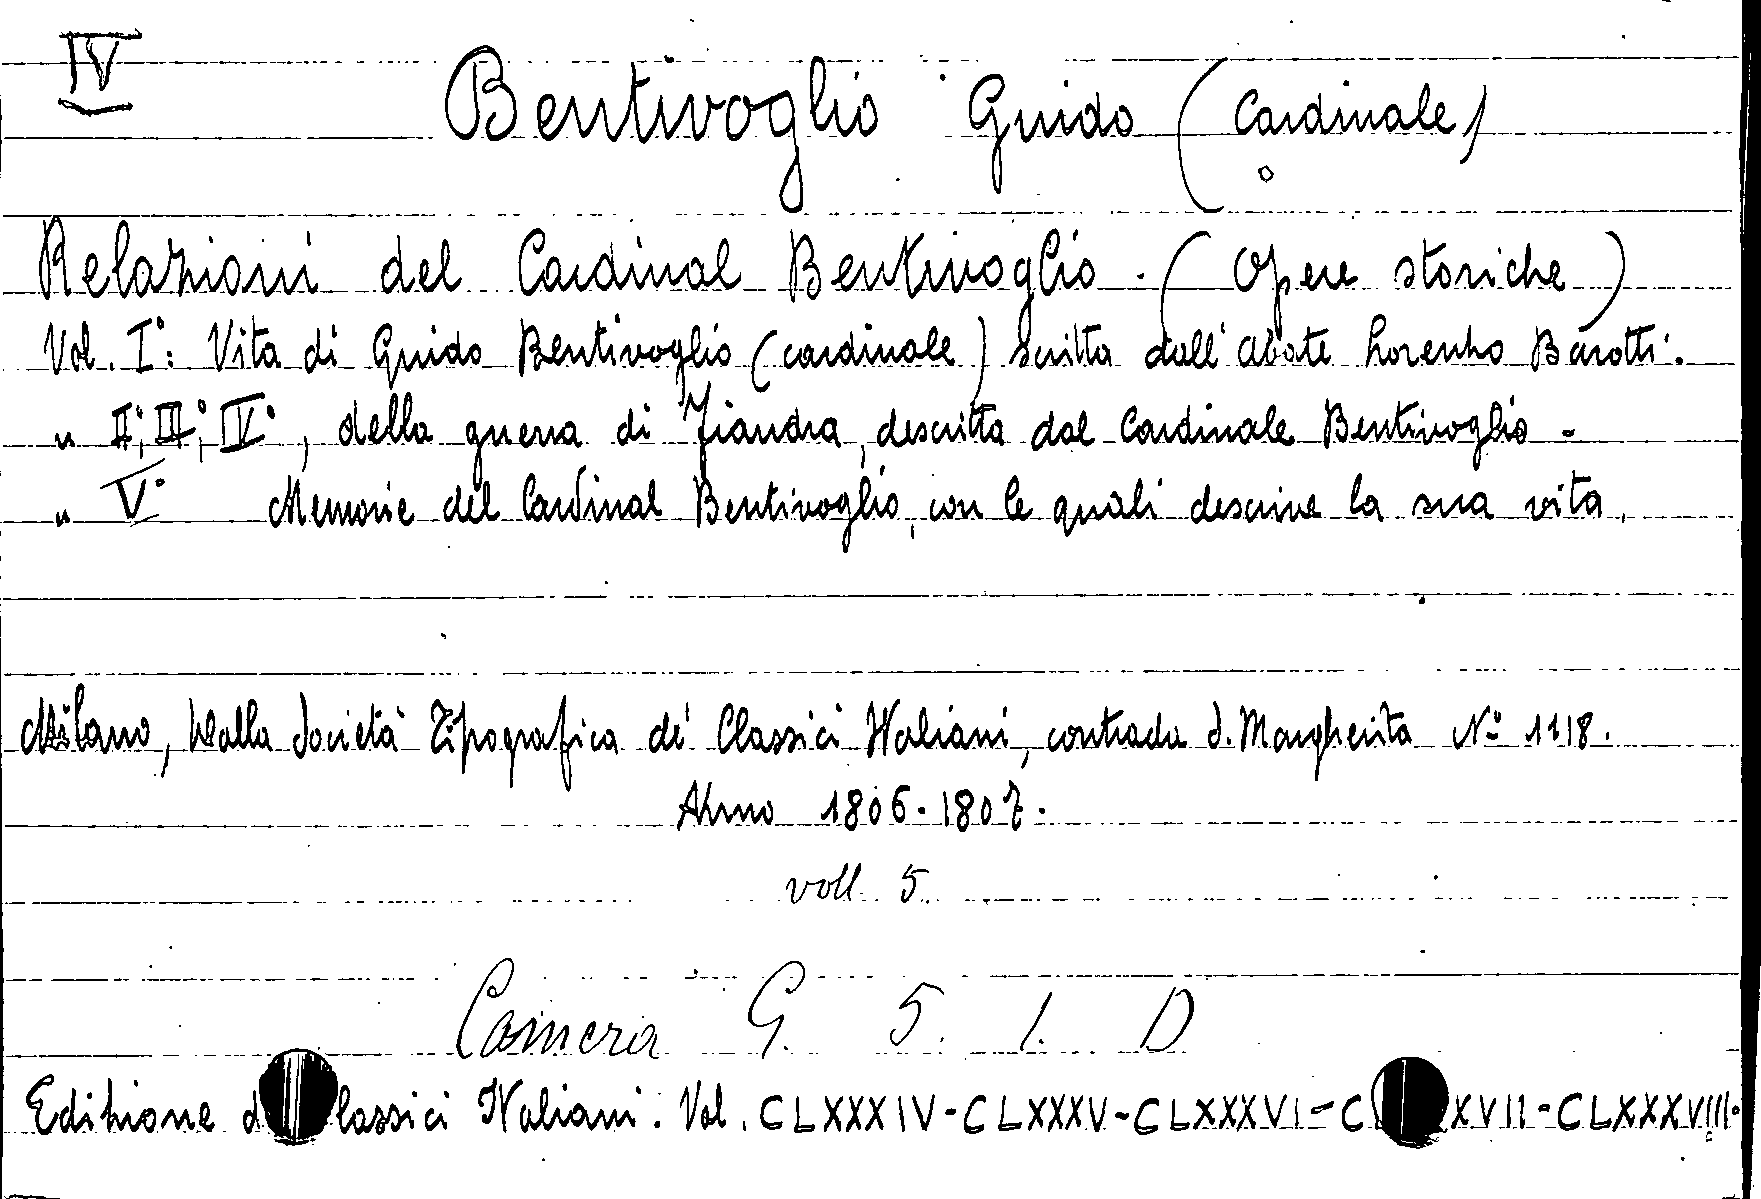 IV
Bentivoglio Guido (Cardinale)
Relazioni del Cardinal Bentivoglio. (Opere storiche)
Vol. I°: Vita di Guido Bentivoglio (cardinale) scritta dall'Abate Lorenzo Barotti.
" II°, III°, IV°, della guerra di Fiandra, descritta dal Cardinale Bentivoglio -
" V° Memorie del Cardinal Bentivoglio, con le quali descrive la sua vita.
Milano, Dalla Società Tipografica de' Classici Italiani, contrada S. Margherita N° 1118.
Anno 1806-1807.
voll. 5.
Camera G. 5. 1. D
Edizione d lassici Italiani. Vol. CLXXXIV-CLXXXV-CLXXXVI-C XVII-CLXXXVIII-